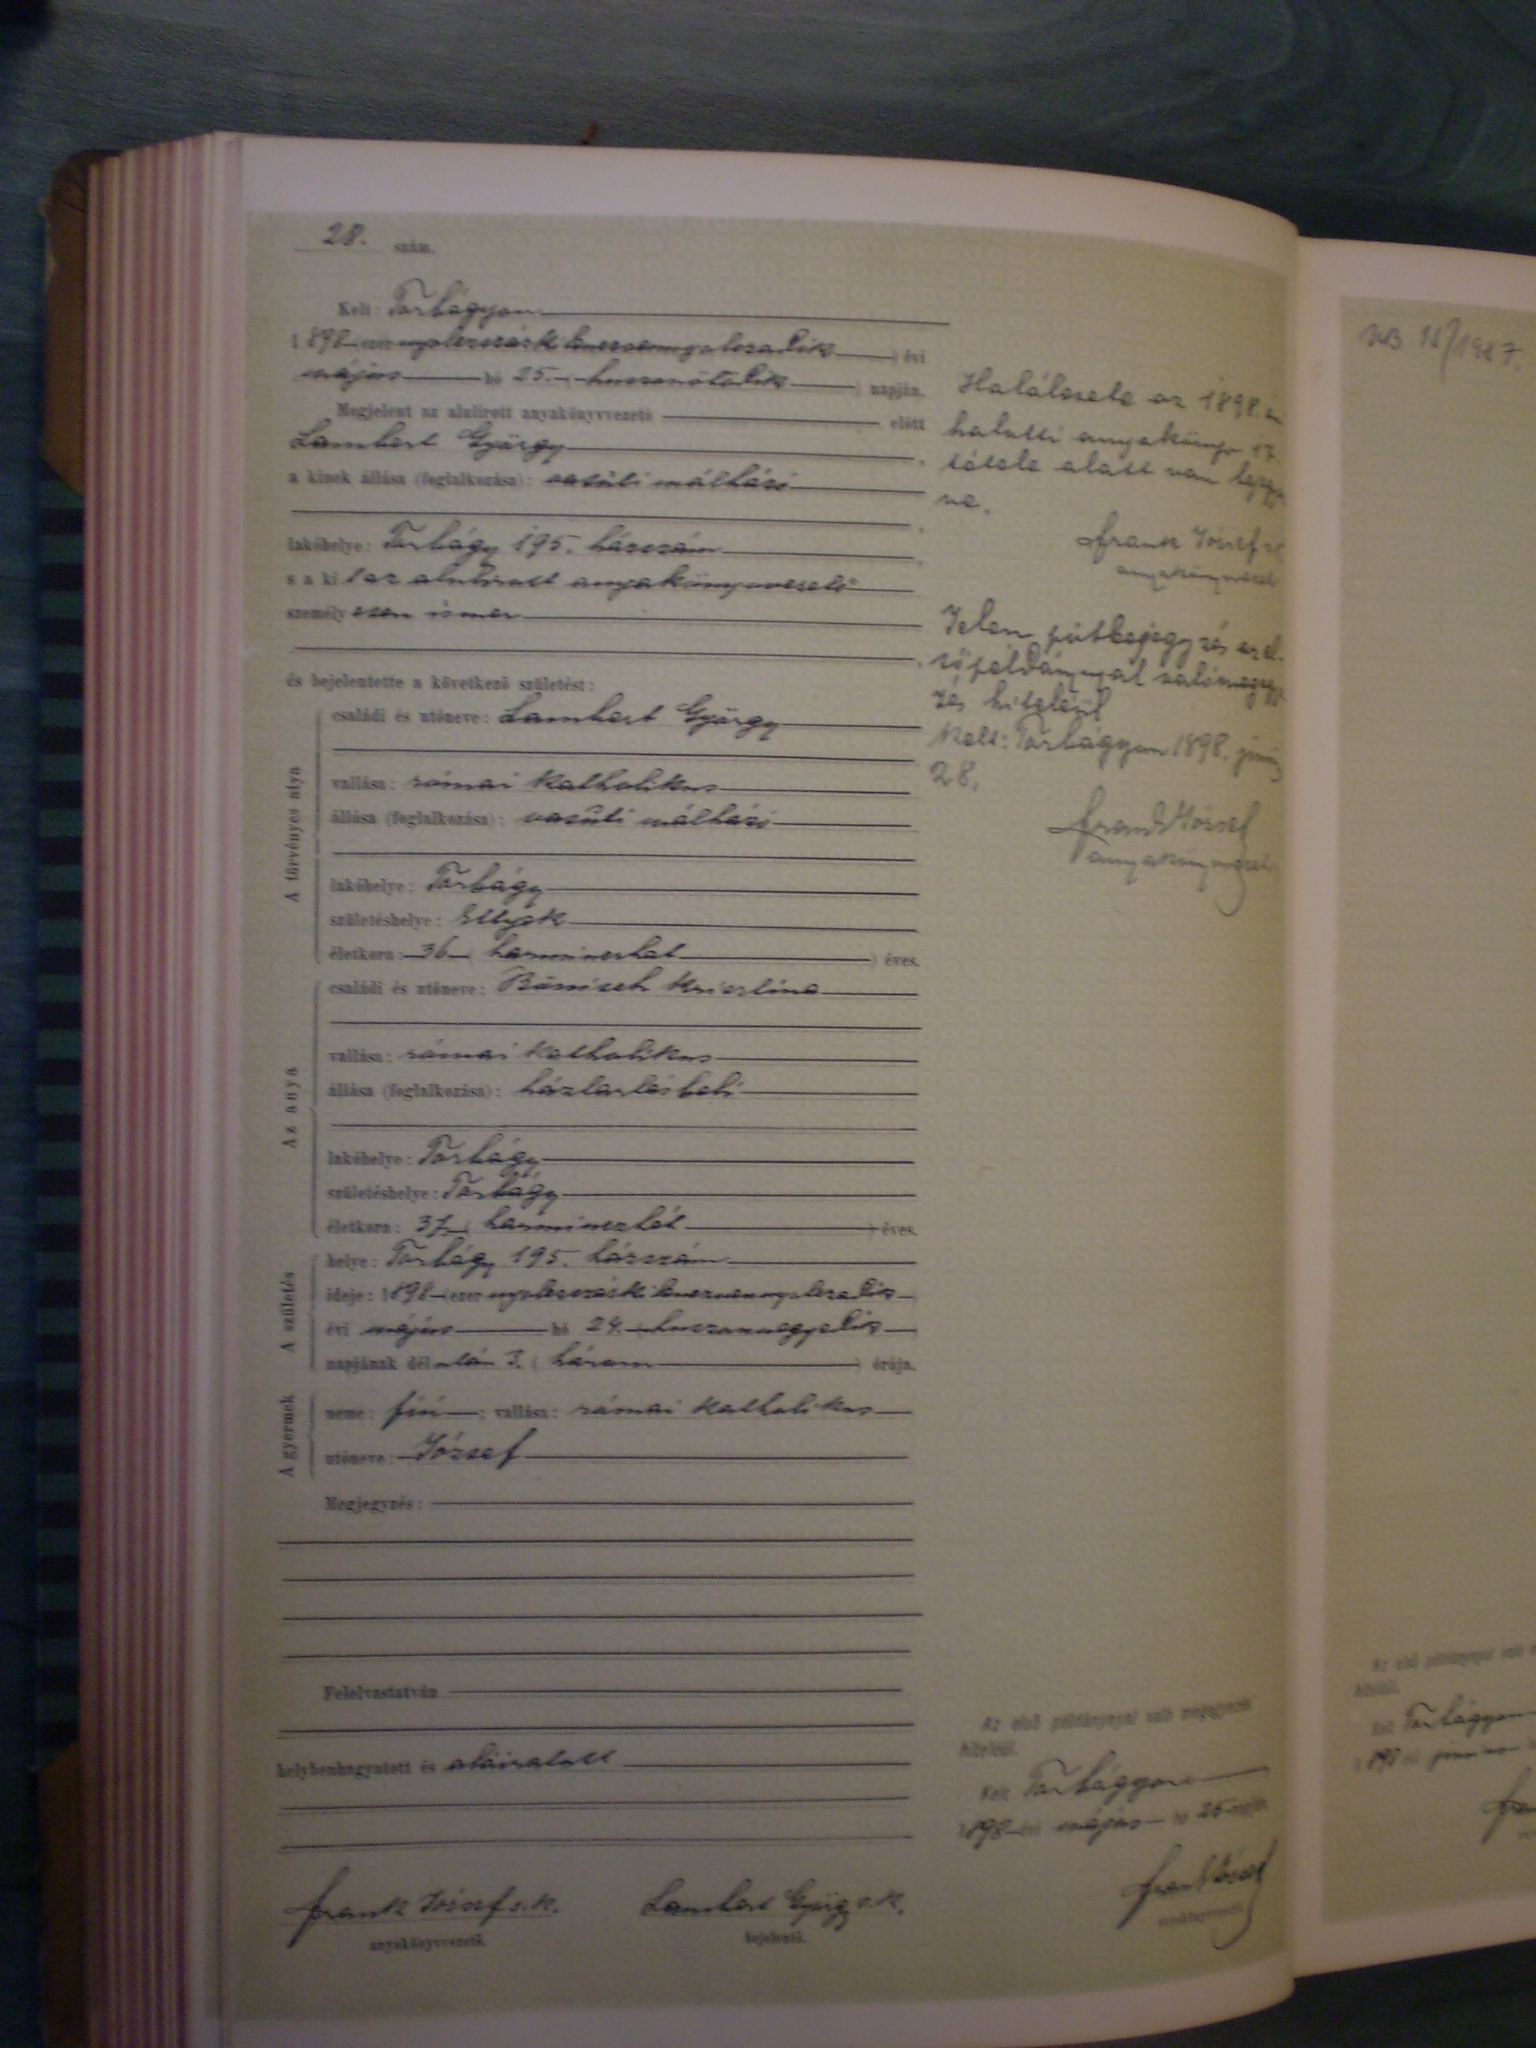 28. szám.
Kelt: Torbágyon
1898 (ezer nyolczszázkilenczvennyolczadik) évi
május hó 25. (huszonötödik) napján.
Megjelent az alulirott anyakönyvvezető előtt
Lambert György
a kinek állása (foglalkozása): vasúti málházó
lakóhelye: Torbágy 195. házszám
s a kit az alulirott anyakönyvvezető
személyesen ismer
és bejelentette a következő születést:
A törvényes atya
családi és utóneve: Lambert György
vallása: római katholikus
állása (foglalkozása): vasúti málházó
lakóhelye: Torbágy
születéshelye: Etyek
életkora: 36 (harminczhat) éves.
Az anya
családi és utóneve: Krisztina
vallása: római katholikus
állása (foglalkozása): háztartásbeli
lakóhelye: Torbágy
születéshelye: Torbágy
életkora: 37 (harminczhét) éves.
A születés
helye: Torbágy 195. házszám
ideje: 1898 (ezer nyolczszázkilenczvennyolczadik)
évi május hó 24. (huszonnegyedik)
napjának délután 3. (három) órája.
A gyermek
neme: fiú; vallása: római katholikus
utóneve: József
Megjegyzés:
Felolvastatván
helybenhagyatott és aláiratott
Frank József s.k.
anyakönyvvezető.
Lambert György s.k.
bejelentő.
Halálesete az 1898. évi
halotti anyakönyv 17.
tétele alatt van bejegyez
ve.
Frank József s.k.
anyakönyvvezető
Jelen utóbejegyzés az el-
ső példánynyal való megegye
zés hiteléül
Kelt: Torbágyon 1898. június
28.
Frank József
anyakönyvvezető
Az első példánynyal való megegyezés
hiteléül.
Kelt Torbágyon
1898 évi május hó 25 napján
Frank József
anyakönyvvezető.
1987.
Az első példánynyal való
hiteléül.
Kelt Torbágyon
1898 évi június